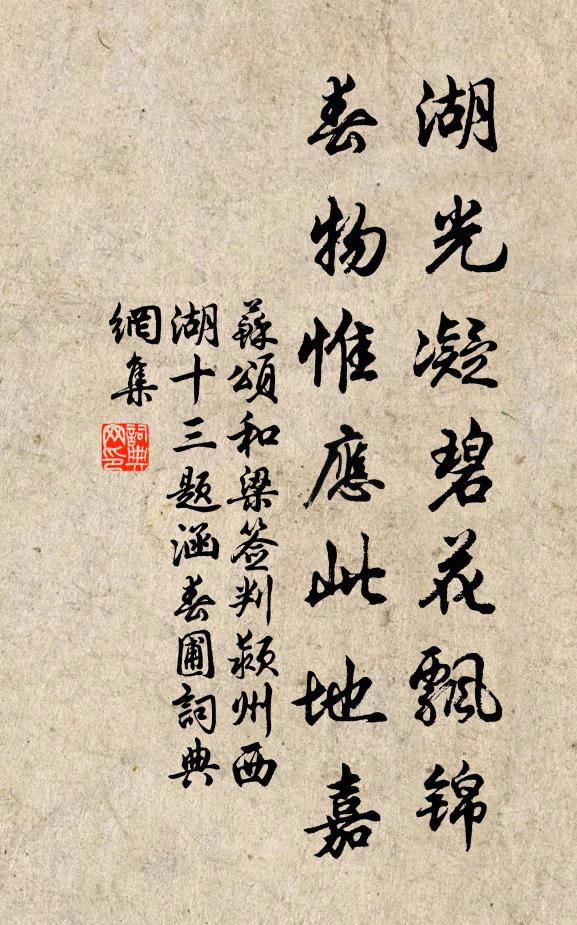 湖光凝碧花飘锦
春物惟應此地嘉
蘇頌和梁签判颍州西
湖十三题涵春圃詞典
網集
詞典网印